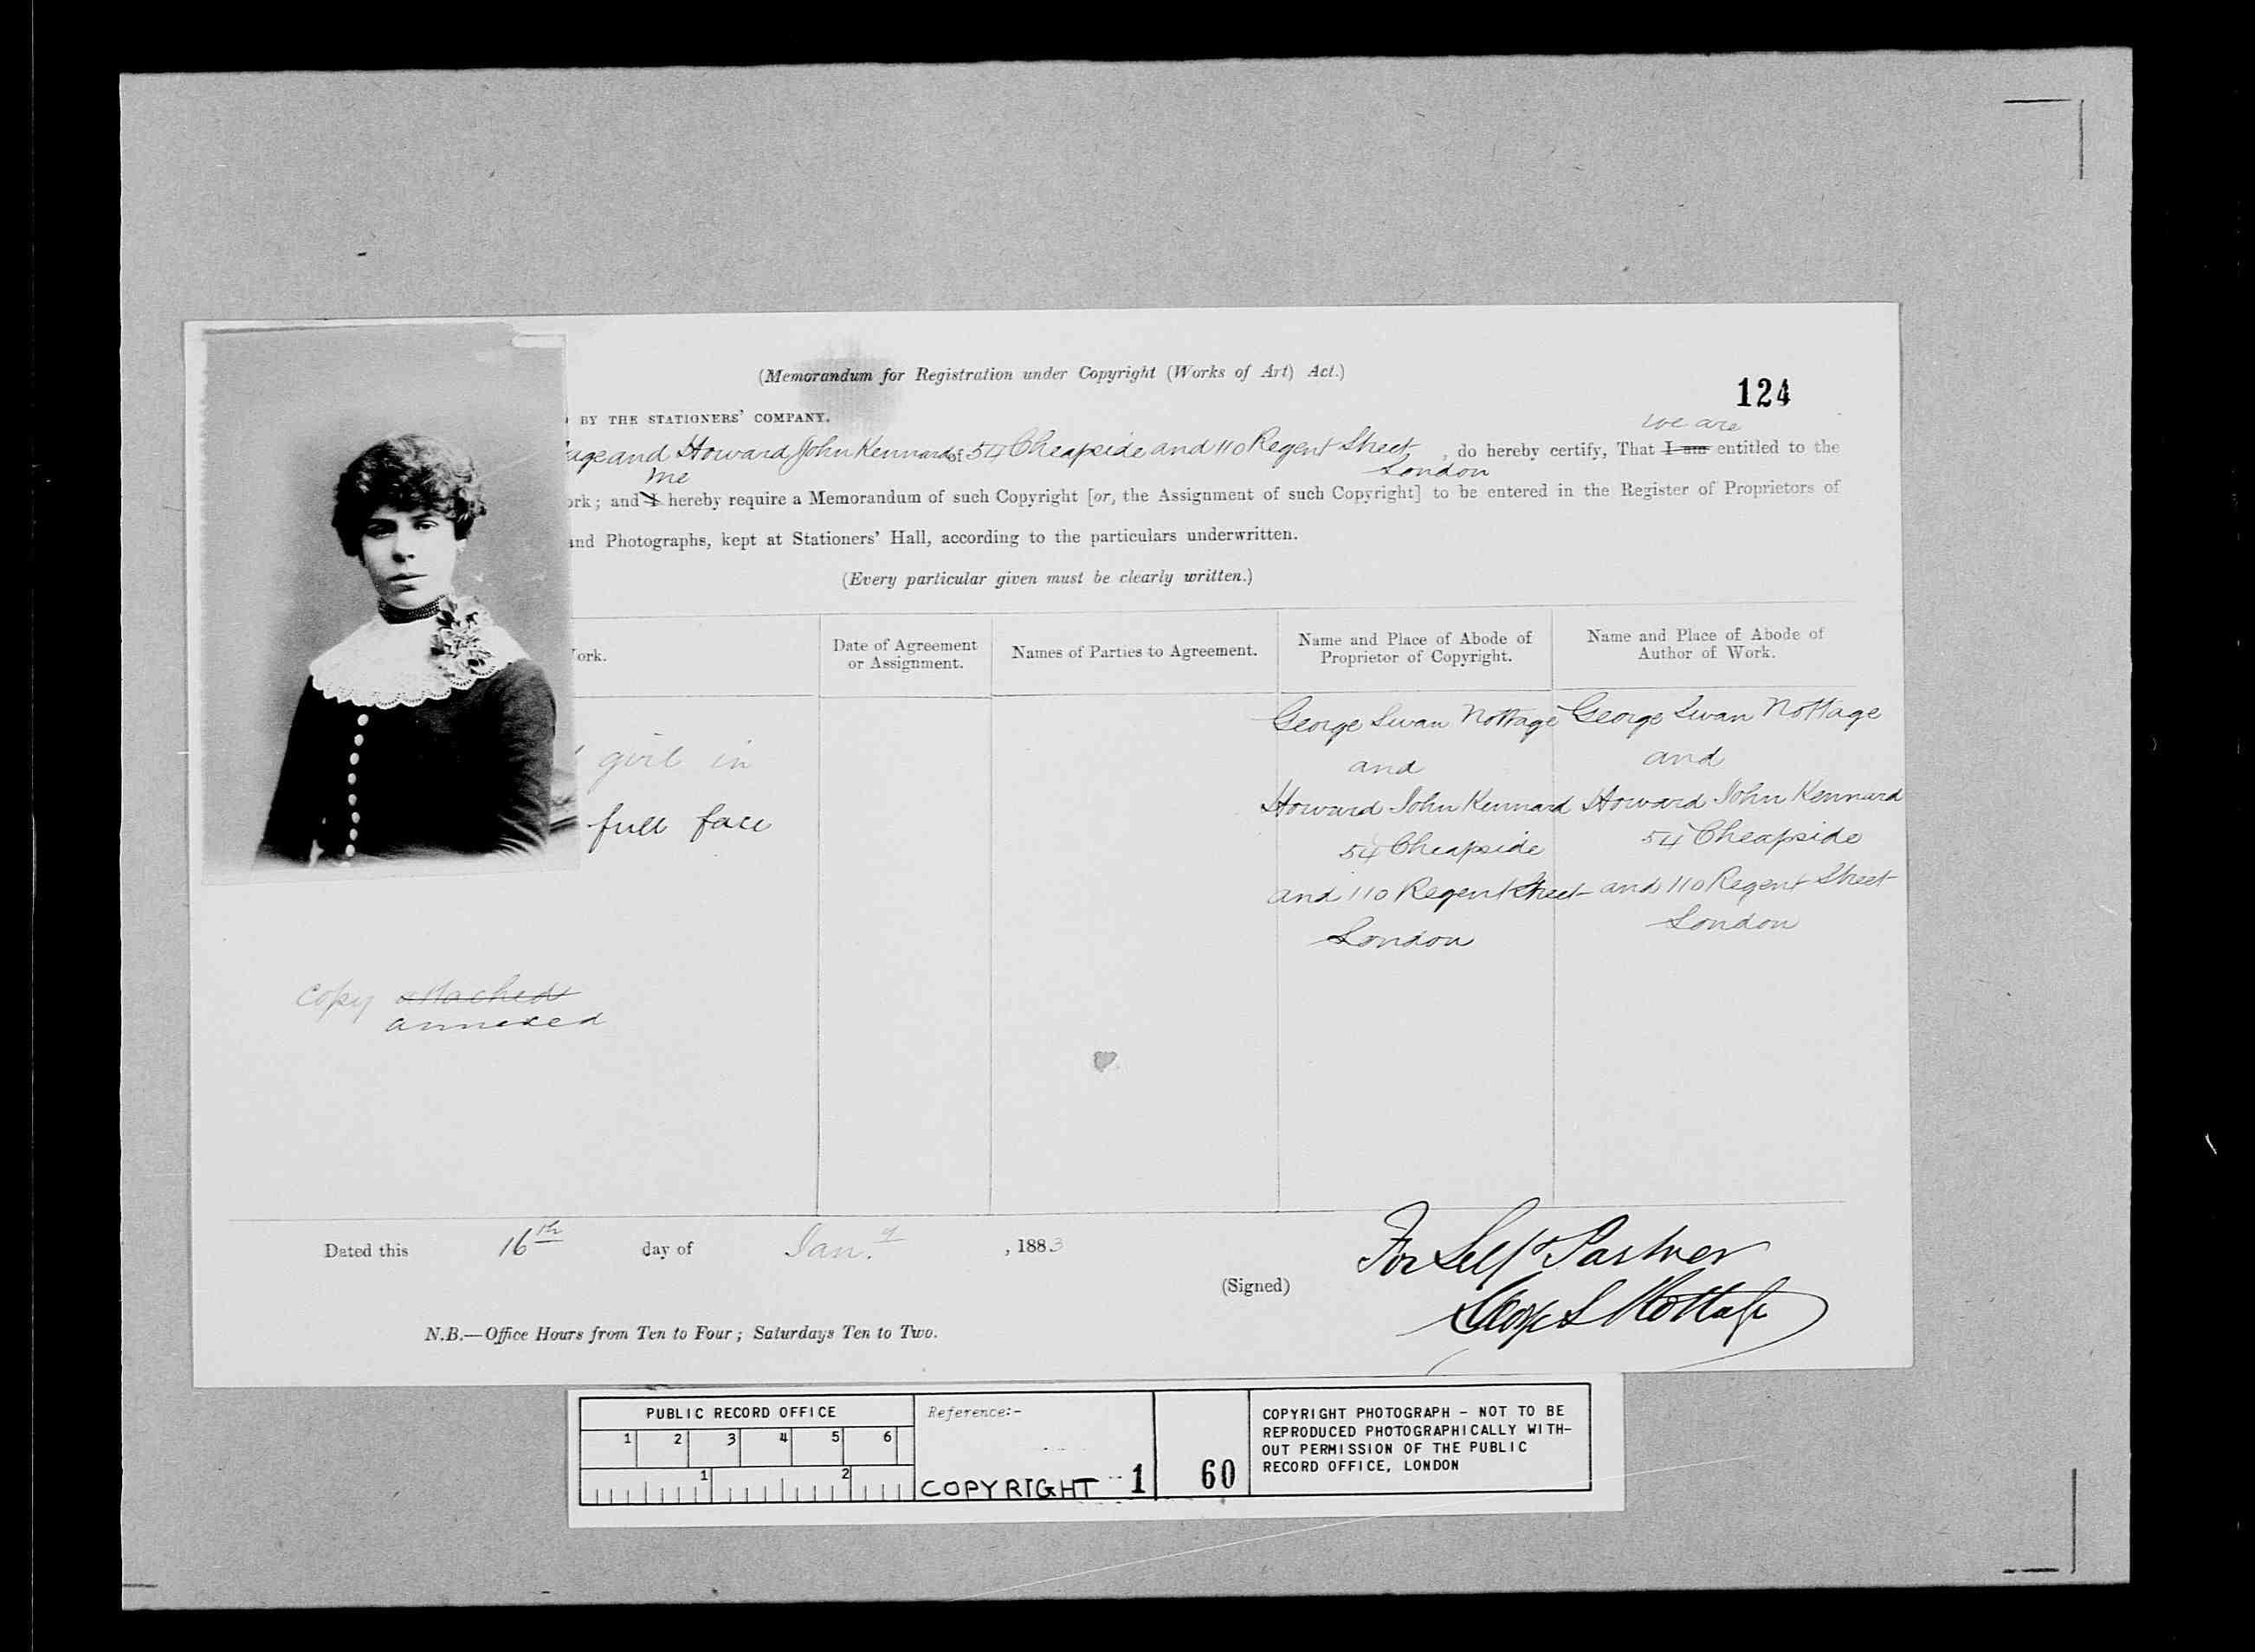 (Memorandum for Registration under Copyright (Works of Art) Act.)
124
BY THE STATIONERS' COMPANY.
we are
and Howard John Kennard of 54 Cheapside and 110 Regent Street, do hereby certify, That I am entitled to the
London
ork; and I hereby require a Memorandum of such Copyright [or, the Assignment of such Copyright] to be entered in the Register of Proprietors of
and Photographs, kept at Stationers' Hall, according to the particulars underwritten.
(Every particular given must be clearly written.)
ork.
Date of Agreement
or Assignment.
Names of Parties to Agreement.
Name and Place of Abode of
Proprietor of Copyright.
Name and Place of Abode of
Author of Work.
girl in
full face
copy attached
annexed
George Swan Nottage
and
Howard John Kennard
54 Cheapside
and 110 Regent Street
London
George Swan Nottage
and
Howard John Kennard
54 Cheapside
and 110 Regent Street
London
Dated this 16th day of Jan.y, 1883
(Signed)
For Self & Partner
George S Nottage
N.B.—Office Hours from Ten to Four; Saturdays Ten to Two.
PUBLIC RECORD OFFICE
1 2 3 4 5 6
1 2
Reference:-
COPYRIGHT 1 60
COPYRIGHT PHOTOGRAPH - NOT TO BE
REPRODUCED PHOTOGRAPHICALLY WITH-
OUT PERMISSION OF THE PUBLIC
RECORD OFFICE, LONDON